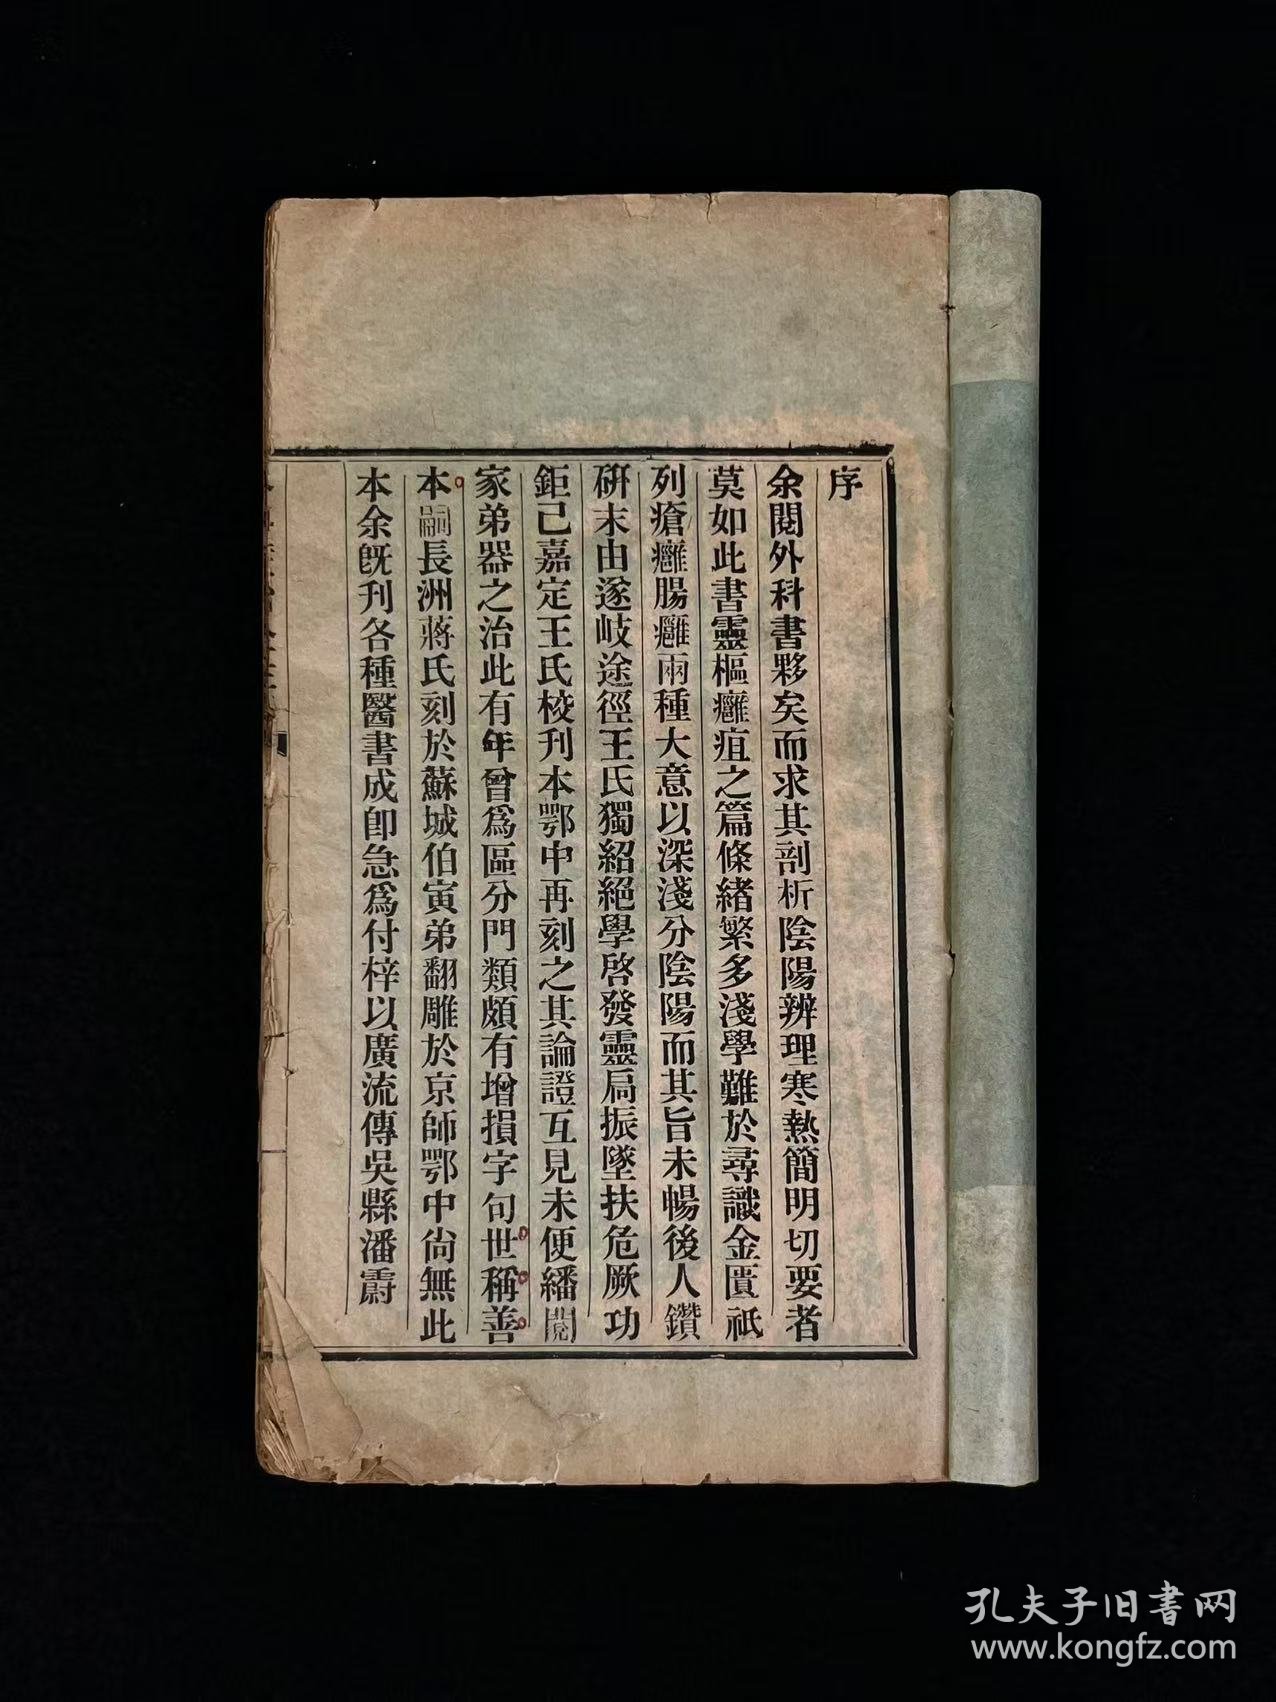 序
余閱外科書夥矣而求其剖析陰陽辨理寒熱簡明切要者
莫如此書靈樞癰疽之篇條緒繁多淺學難於尋識金匱祇
列瘡癰腸癰兩種大意以深淺分陰陽而其旨未暢後人鑽
研末由遂岐途徑王氏獨紹絕學啓發靈扃振墜扶危厥功
鉅已嘉定王氏校刊本鄂中再刻之其論證互見未便繙閱
家弟器之治此有年曾爲區分門類頗有增損字句世稱善
本嗣長洲蔣氏刻於蘇城伯寅弟翻雕於京師鄂中尙無此
本余旣刊各種醫書成卽急爲付梓以廣流傳吳縣潘霨
孔夫子旧书网
www.kongfz.com